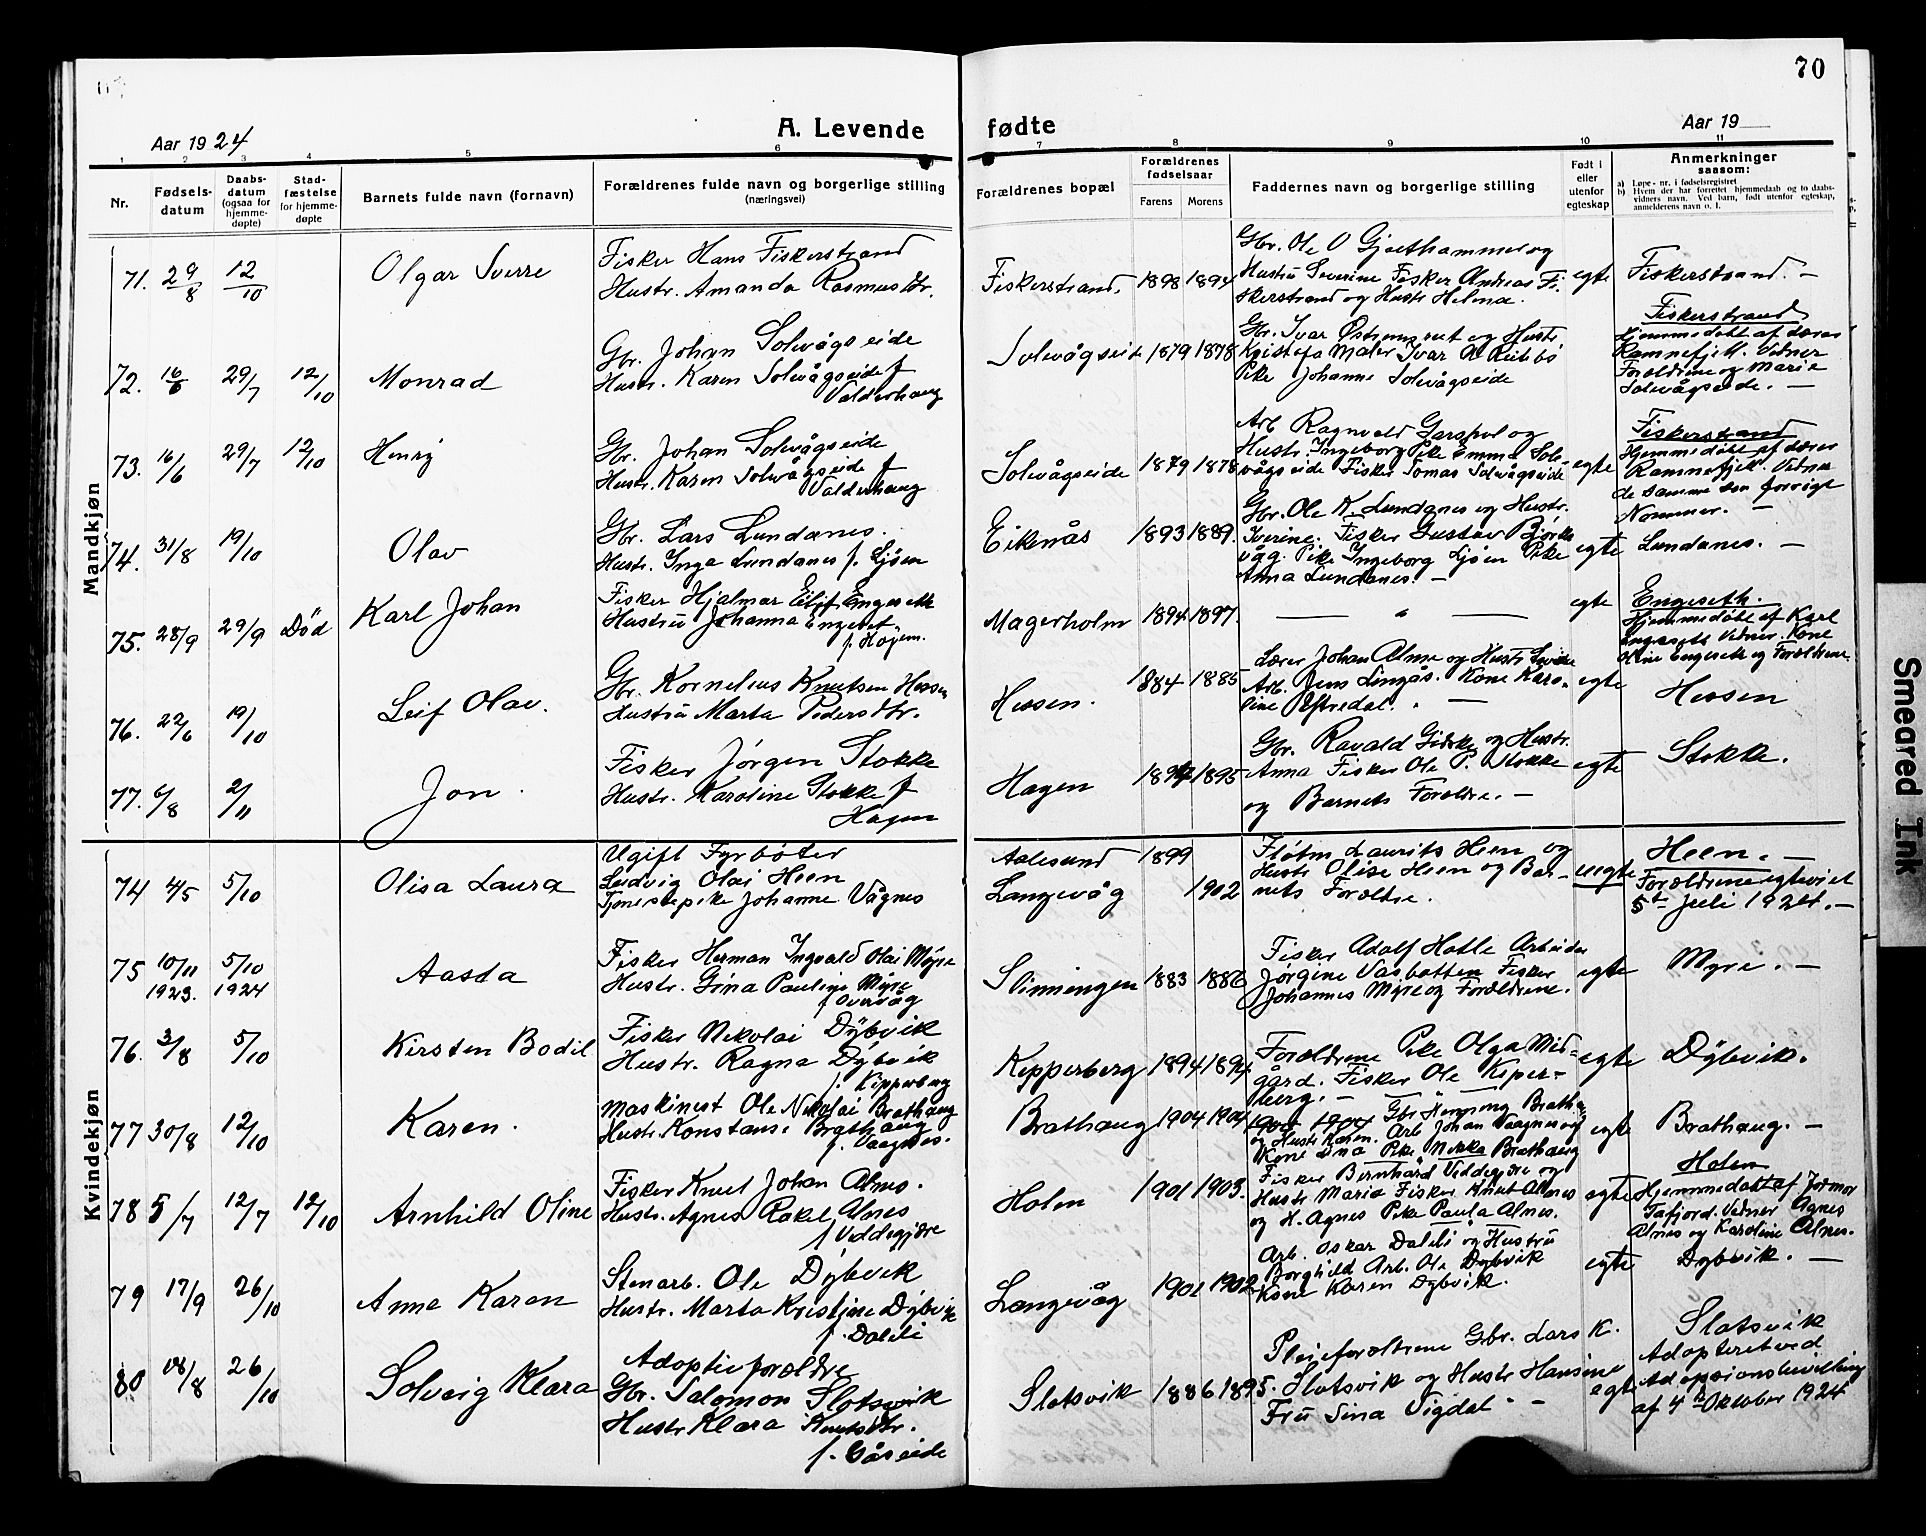 70
Aar 1924
A. Levende fødte
Aar 19
1 2 3 4 5 6 7 8 9 10 11
Nr.
Fødsels-
datum
Daabs-
datum
(ogsaa for
hjemme-
døpte)
Stad-
fæstelse
for hjemme-
døpte
Barnets fulde navn (fornavn)
Forældrenes fulde navn og borgerlige stilling
(næringsvei)
Forældrenes bopæl
Forældrenes
fødselsaar
Farens Morens
Faddernes navn og borgerlige stilling
Født i
eller
utenfor
egteskap
Anmerkninger
saasom:
a) Løpe-nr. i fødselsregistret
b) Hvem der har forrettet hjemmedaab og to daabs-
vidners navn. Ved barn, født utenfor egteskap,
anmelderens navn o. l.
Mandkjøn
71. 29/8 12/10 Olgar Sverre
Fisker Hans Fiskerstrand
Hustr. Amanda Rasmusdtr.
Fiskerstrand. 1898 1894
Gbr. Ole O Gjethammer og
Hustru Severine Fisker Andreas Fi-
skerstrand og Hustr Helma.
egte Fiskerstrand. –
72. 16/6 29/7 12/10 Monrad
Gbr. Johan Solvågseide
Hustr. Karen Solvågseide f
Valderhaug
Solvågseid 1879 1878
Gbr. Ivar og Hustr.
Ivar
Pike Johanne Solvågseide
Fiskerstrand
Hjemmedøbt af Lærer
Ramnefjell. Vidner
Forældrene og Marie
Solevågseide. –
73. 16/6 29/7 12/10 Henry
Gbr. Johan Solvågseide
Hustr. Karen Solvågseide f
Valderhaug
Solvågseide 1879 1878
Arb. Ragnvald og
Hustr. Ingeborg Pike Emma Sol-
vågseide Fisker Tomas Solvågseide
egte
Fiskerstrand
Hjemmedøbt af Lærer
Ramnefjell. Vidner
de samme som forrige
Nommer. –
74. 31/8 19/10 Olav
Gbr. Lars Lundanes.
Hustr. Inga Lundanes f. Ljøen
Eikenås 1893 1889.
Gbr. Ole K. Lundanes og Hustr.
Iverine. Fisker Gustav Bjørke
våg. Pike Ingeborg Ljøen Pike
Anna Lundanes. –
egte Lundanes. –
75. 28/9 29/9 Død Karl Johan
Fisker Hjalmar Eilif Engeseth
Hustru Johanna Engeset
f. Høgem.
Magerholm 1894 1897.
— " —
egte
Engeseth.
Hjemmedøbt af Karl
Engeseth Vidner. Kone
Oline Engeseth og Forældrene
76. 22/6 19/10 Leif Olav.
Gbr. Kornelius Knutsen Hessen
Hustru Marta Pedersdtr.
Hessen. 1884 1885
Lærer Johan Alme og Hustr
Arb. Jens Lingås. Kone Karo-
line
egte Hessen
77. 6/8 2/11 Jon.
Fisker Jørgen Stokke
Hustr. Karoline Stokke f
Hagen
Hagen 1895
Gbr. Ravald Giske og Hustr.
Anna Fisker Ole P. Stokke
og Barnets Forældre. –
egte Stokke.
Kvindekjøn
74 4/5 5/10 Olisa Laura
Ugift Fyrbøter
Ludvig Olai Heen
Tjenestepike Johanne Vågnes
Aalesund 1899
Langevåg 1902
Fløtm Laurits Heen og
Hustr Olise Heen og Bar-
nets Forældre.
uegte
Heen. –
Forældrene egteviet
5te Juli 1924. –
75 10/11 1923. 5/10 1924 Aasta
Fisker Herman Ingvald Olai Myre
Hustr. Gina Pauline Myre
f Overvåg
Slinningen 1883 1886
Fisker Adolf Hatle Arbeider
Jørgine Vasbotten Fisker
Johannes Myre og Forældrene.
egte Myre. –
76. 3/8 5/10 Kirsten Bodil
Fisker Nikolai Dybvik
Hustr. Ragna Dybvik
f. Kipperberg
Kipperberg 1894 1894
Forældrene Pike Olga Mid-
gård. Fisker Ole Kiper-
berg. –
egte Dybvik.
77 30/8 12/10 Karen.
Maskinest Ole Nikolai Brathaug
Hustr. Konstanse Brathaug
f. Vaagnes.
Brathaug 1904 1904
1904 1904 Gbr Henning Bratha-
og Hustr Karen. Arb Johan Vaagnes og
Kone Ina Pike Mekka Brathaug
egte Brathaug. –
78 5/7 12/7 12/10 Arnhild Oline
Fisker Knut Johan Alnes.
Hustr. Agnes Rakel Alnes
f Veddegjære
Holen 1901 1903.
Fisker Bernhard Veddegjære og
Hustr Maria Fisker Knut Alnes
og H. Agnes Pike Paula Alnes.
egte
Holen
Hjemmedøbt af Jormor
Tafjord. Vidner Agnes
Alnes og Karoline Alnes.
79 17/9 26/10 Anna Karen
Stenarb. Ole Dybvik
Hustr. Marta Kristine Dybvik
f. Dalsli
Langevåg 1901 1902
Arb. Oskar Dalsli og Hustru
Borghild Arb. Ole Dybvik
Kone Karen Dybvik.
egte Dybvik. –
80 18/8 26/10 Solveig Klara
Adoptivforældre
Gbr. Salomon Slotsvik
Hustr Klara Knutsdtr.
f. Gåseide
Slotsvik 1886 1895.
Pleieforældrene Gbr. Lars K.
Slotsvik og Hustr Hansine
Fru Sina Vigdal. –
egte
Slotsvik
Adopteret ved
Adopsionsbevilling
af 4de Oktober 1924
Smeared Ink